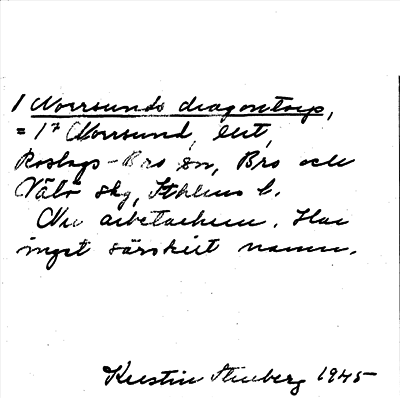 1 Norrsunds dragontorp,
= 1/7 Norrsund, lht,
Roslags-Bro sn, Bro och
Vätö skg, Sthlms l.
Nu arbetarhem. Har
inget särskilt namn.
Kerstin Stenberg 1945